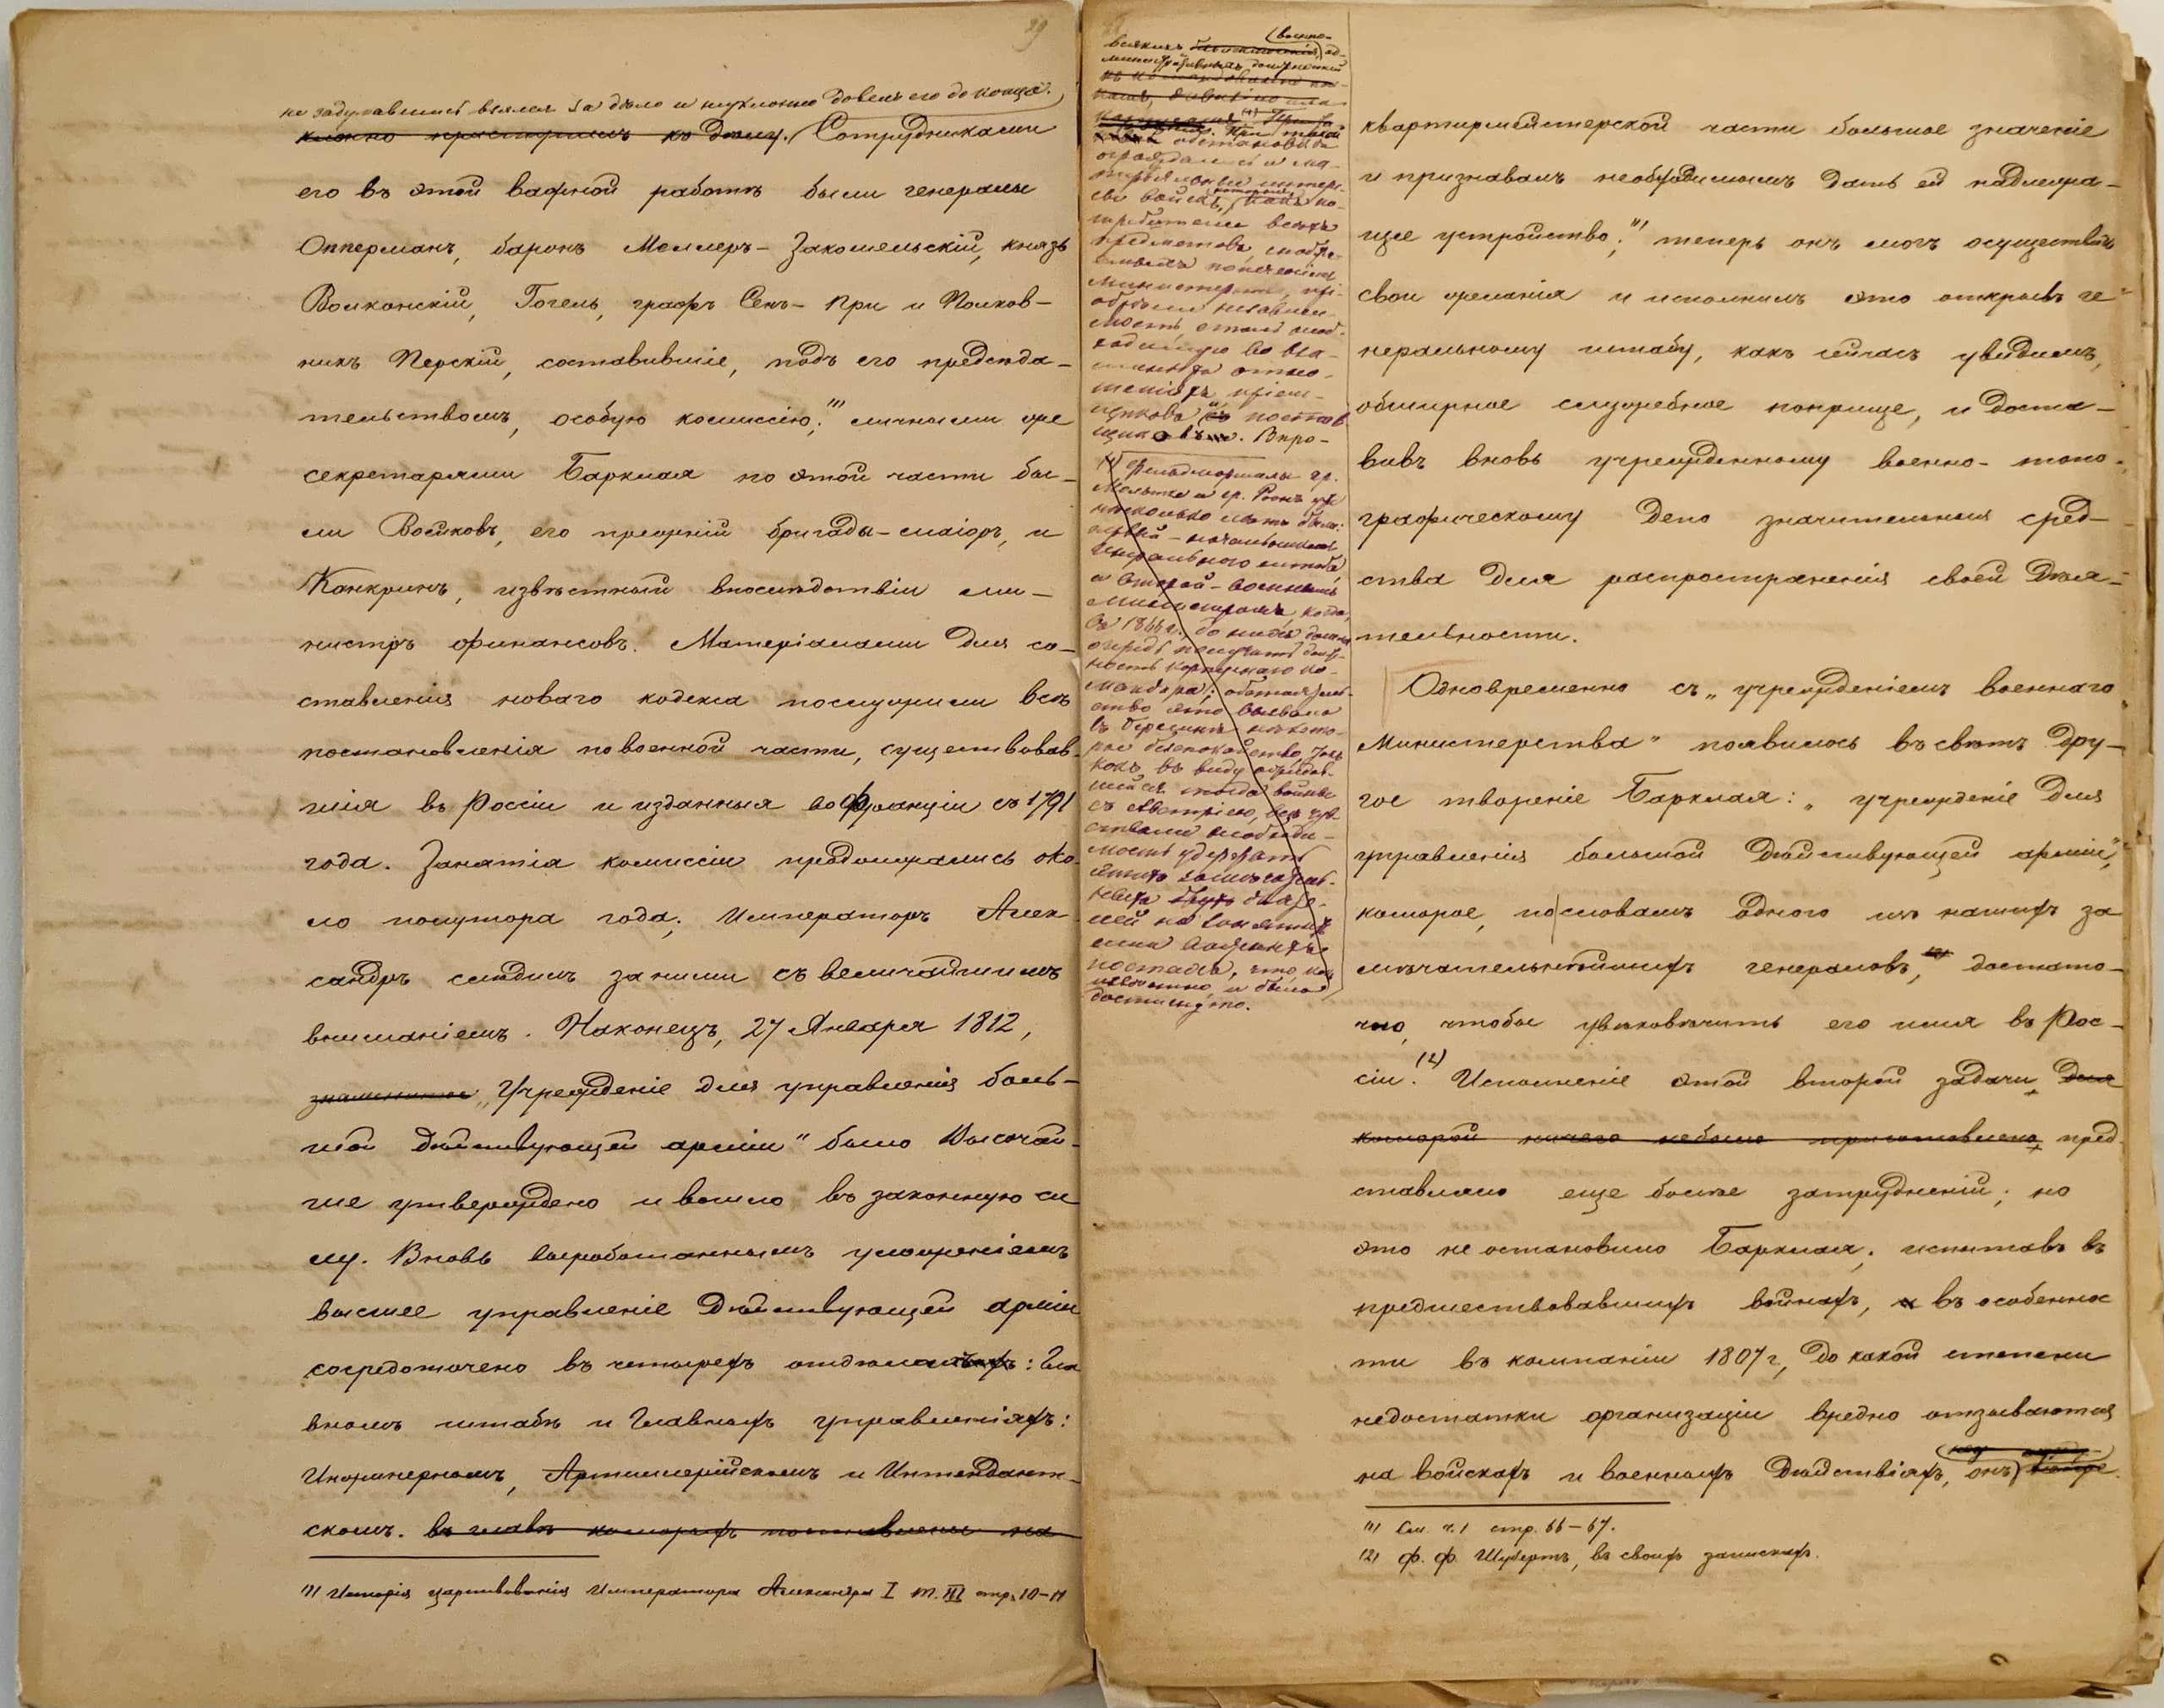 29
не задумавшись взялся за дѣло и неуклонно довелъ его до конца.
къ дѣлу. Сотрудниками
его въ этой важной работѣ были генералы
Опперманъ, баронъ Меллеръ-Закомельскій, князь
Волконскій, Гогель, графъ Сенъ-При и Полков-
никъ Перскій, составившіе, подъ его предсѣда-
тельствомъ, особую комиссію; (1) личными же
секретарями Барклая по этой части бы-
ли Воейковъ, его прежній бригадъ-маіоръ, и
Канкринъ, извѣстный впослѣдствіи ми-
нистръ финансовъ. Матеріалами для со-
ставленія новаго кодекса послужили всѣ
постановленія по военной части, существовав-
шія въ Россіи и изданныя во Франціи съ 1791
года. Занятія комиссіи продолжались око-
ло полутора года; Императоръ Алек-
сандръ слѣдилъ за ними съ величайшимъ
вниманіемъ. Наконецъ, 27 Января 1812,
знаменитое „Учрежденіе для управленія боль-
шой дѣйствующей арміи" было Высочай-
ше утверждено и вошло въ законную си
лу. Вновь выработаннымъ уложеніемъ
высшее управленіе дѣйствующей арміи
сосредоточено въ четырехъ отдѣлахъ: Гла
вномъ штабѣ и Главныхъ управленіяхъ:
Инженерномъ, Артиллерійскомъ и Интендант-
скомъ. въ главѣ которыхъ поставлены на
(1) Исторія царствованія Императора Александра I т. III стр. 10-11
(военно-
всякихъ ад-
министративныхъ должностей
При такой
обстановкѣ
ограждались и ма-
теріальные интере-
сы войскъ, которыя, какъ по-
требители всѣхъ
предметовъ, снабжа-
емыхъ попеченіемъ
Министерства, прі-
обрѣли независи-
мость, столь необ-
ходимую во вза-
имныхъ отно-
шеніяхъ пріем-
щиковъ и постав
щиковъ. Впро-
(*) Фельдмаршалы гр.
Мольтке и гр. Роонъ уже
нѣсколько лѣтъ были:
первый - начальникомъ
Генеральнаго штаба
а второй - военнымъ
Министромъ, когда,
въ 1866 г., до нихъ дошла
очередь получить долж-
ность корпуснаго ко-
мандира; обстоятель-
ство это вызвало
въ Берлинѣ нѣкото-
рое безпокойство, такъ
какъ въ виду ожидав-
шейся тогда войны
съ Австріею, всѣ чув-
ствовали необходи-
мость удержать
этихъ замѣчатель-
ныхъ дѣяте-
лей на занятыхъ
ими важныхъ
постахъ, что, какъ
извѣстно и было
достигнуто.
квартирмейстерской части большое значеніе
и признавалъ необходимымъ дать ей надлежа-
щее устройство; (1) теперь онъ могъ осуществить
свои желанія и исполнилъ это открывъ ге-
неральному штабу, какъ сейчасъ увидимъ,
обширное служебное поприще, и доста-
вивъ вновь учрежденному военно-топо-
графическому Депо значительныя сред-
ства для распространенія своей дѣя-
тельности.
Одновременно съ „учрежденіемъ военнаго
Министерства" появилось въ свѣтъ дру-
гое твореніе Барклая: „учрежденіе для
управленія большой дѣйствующей арміи",
которое, по словамъ одного изъ нашихъ за
мѣчательнѣйшихъ генераловъ, достато-
чно, чтобы увѣковѣчить его имя въ Рос-
сіи. (2) Исполненіе этой второй задачи, для
которой ничего не было приготовлено, пред-
ставляло еще болѣе затрудненій; но
это не остановило Барклая; испытавъ въ
предшествовавшихъ войнахъ, и въ особеннос
ти въ кампаніи 1807 г, до какой степени
недостатки организаціи вредно отзываются
на войскахъ и военныхъ дѣйствіяхъ, онъ)
(1) См. ч. 1 стр. 66-67.
(2) Ф. Ф. Шубертъ, въ своихъ запискахъ.